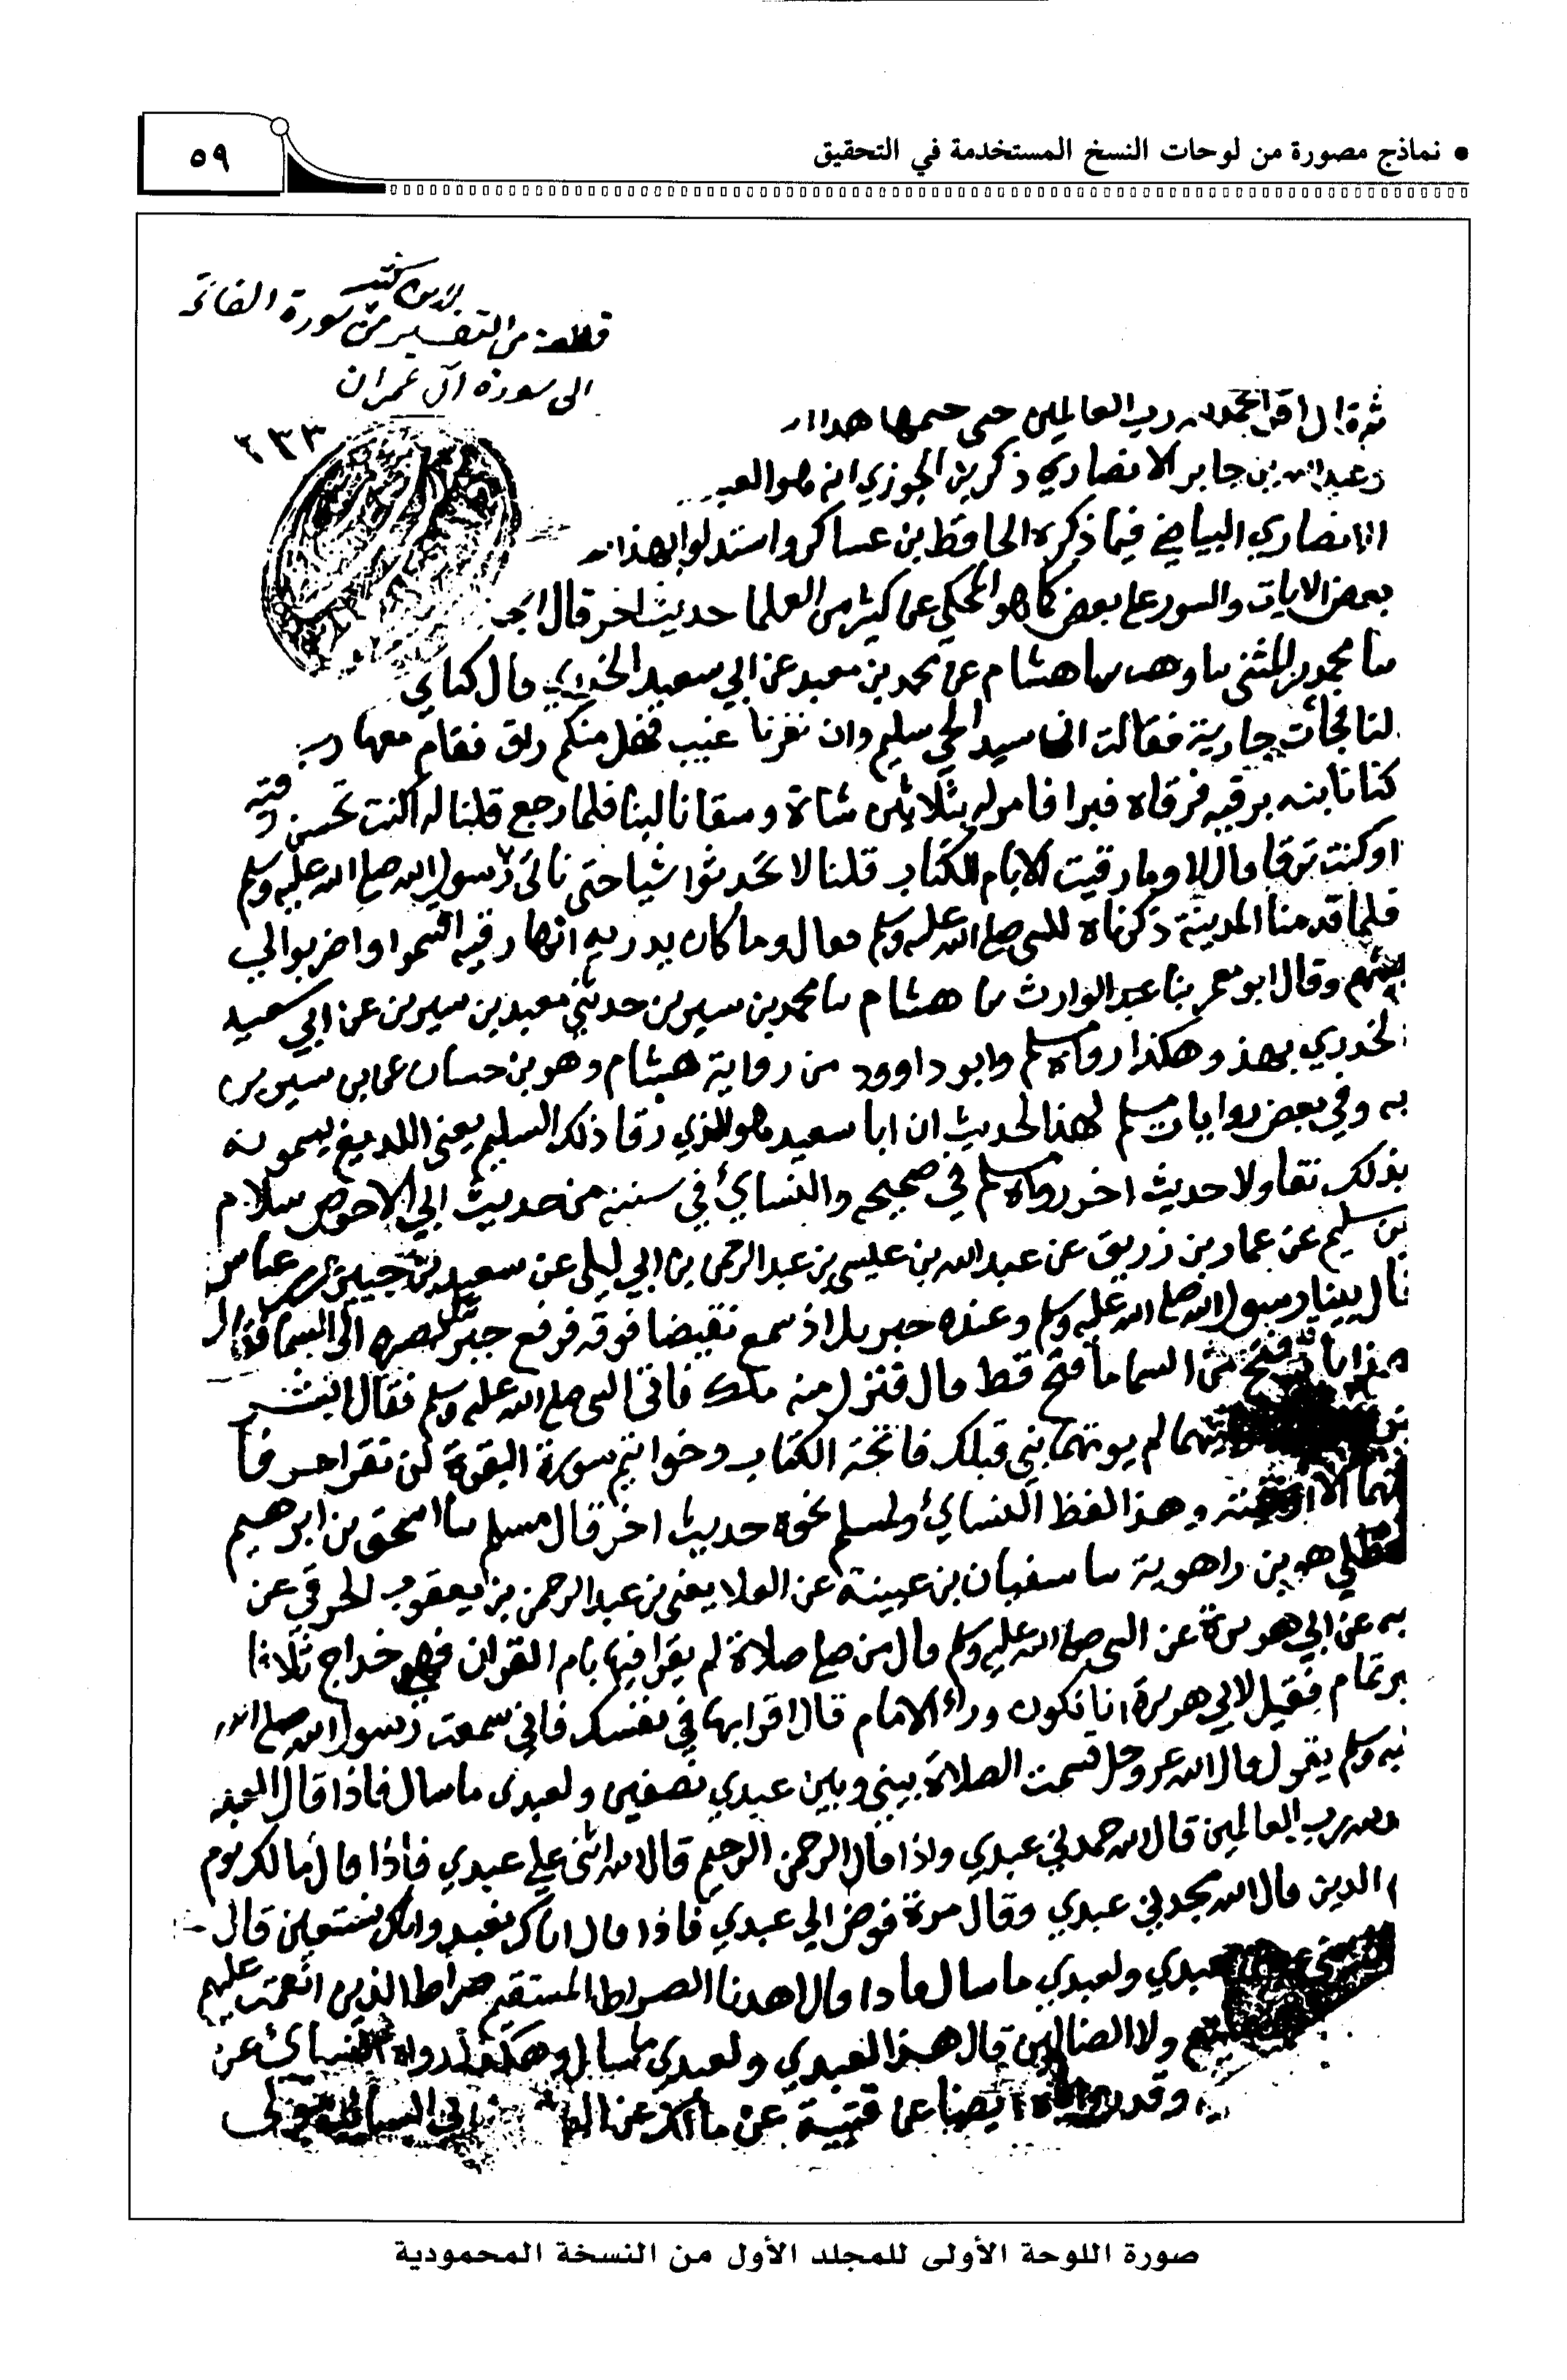 • نماذج مصورة من لوحات النسخ المستخدمة في التحقيق
٥٩
لابن كثير
قطعة من التفسير من سورة الفاتحة
الى سورة ال عمران
٦٣٣
اقرا الحمد لله رب العالمين حتى تختمها هذا
وعبد الله بن جابر الانصاري ذكر بن الجوزي انه هو العبد
الانصاري البياضي فيما ذكره الحافظ بن عساكر واستدلوا بهذا
بعض الايات والسور على بعض كما هو المحكي عن كثير من العلما حديث اخر قال البخـ
سا محمد بن المثنى سا وهب سا هشام عن محمد بن معبد عن ابي سعيد الخدري قال كنا في
لنا فجأت جارية فقالت ان سيد الحي سليم وان نفرنا غيب فهل منكم راق فقام معها رجـ
كنا نابنه برقيه فرقاه فبرا فامر له بثلاثين شاة وسقانا لبنا فلما رجع قلنا له اكنت تحسن رقيه
او كنت ترقا قال لا وما رقيت الا بام الكتاب قلنا لا تحدثوا شيا حتى ناتي رسول الله صلى الله عليه وسلم
فلما قدمنا المدينة ذكرناه للنبي صلى الله عليه وسلم فقال وما كان يدريه انها رقيه اقسموا واضربوا لي
بسهم وقال ابو معمر بنا عبد الوارث سا هشام سا محمد بن سيرين حدثني معبد بن سيرين عن ابي سعيد
لخدري بهذ وهكذا رواه مسلم وابو داوود من رواية هشام وهو بن حسان عن بن سيرين
به وفي بعض روايات مسلم لهذا الحديث ان ابا سعيد هو الذي رقا ذلك السليم يعني اللديغ يسمونه
بذلك تفاولا حديث اخر رواه مسلم في صحيحه والنسائي في سننه من حديث ابي الاحوص سلام
بن سليم عن عمار بن زريق عن عبد الله بن عيسى بن عبد الرحمن بن ابي ليلى عن سعيد بن جبير عن بن عباس
قال بينا رسول الله صلى الله عليه وسلم وعنده جبريل اذ سمع نقيضا فوقه فرفع جبريل بصره الى السما فقال
هذا باب قد فتح من السما ما فتح قط قال فنزل منه ملك فاتى النبي صلى الله عليه وسلم فقال ابشر
بنو تيتهما لم يوتهما نبي قبلك فاتحة الكتاب وخواتيم سورة البقرة لن تقرا حرفا
منهما الا اوتيته وهذا لفظ النسائي ولمسلم نحوه حديث اخر قال مسلم سا اسحق بن ابرهيم
لحنظلي هو بن راهوية سا سفيان بن عيينة عن العلا يعني بن عبد الرحمن بن يعقوب الحرقي عن
به عن ابي هريرة عن النبي صلى الله عليه وسلم قال من صلى صلاة لم يقرا فيها بام القران فهي خداج ثلاثا
ير تمام فقيل لابي هريرة انا نكون وراء الامام قال اقرا بها في نفسك فاني سمعت رسول الله صلى الله
يه وسلم يقول قال الله عز وجل قسمت الصلاة بيني وبين عبدي نصفين ولعبدي ما سال فاذا قال العبد
لله رب العالمين قال الله حمدني عبدي واذا قال الرحمن الرحيم قال الله اثنى علي عبدي فاذا قال مالك يوم
الدين قال الله مجدني عبدي وقال مرة فوض الي عبدي فاذا قال اياك نعبد واياك نستعين قال
بيني وبين عبدي ولعبدي ما سال فاذا قال اهدنا الصراط المستقيم صراط الذين انعمت عليهم
ولا الضالين قال هذا لعبدي ولعبدي ما سال وهكذا رواه النسائي عن
وقد رواه ايضا عن قتيبة عن مالك عن العلا ابي السائب مولى
صورة اللوحة الأولى للمجلد الأول من النسخة المحمودية